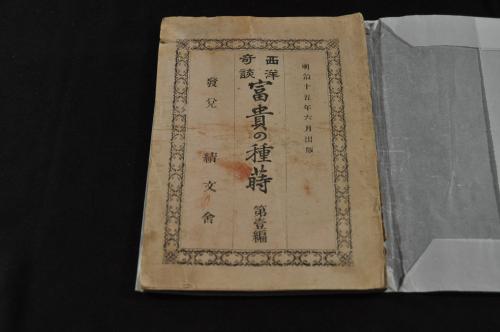 明治十五年六月出版
西洋
奇談
富貴の種蒔
第壹編
發兌 績文舍